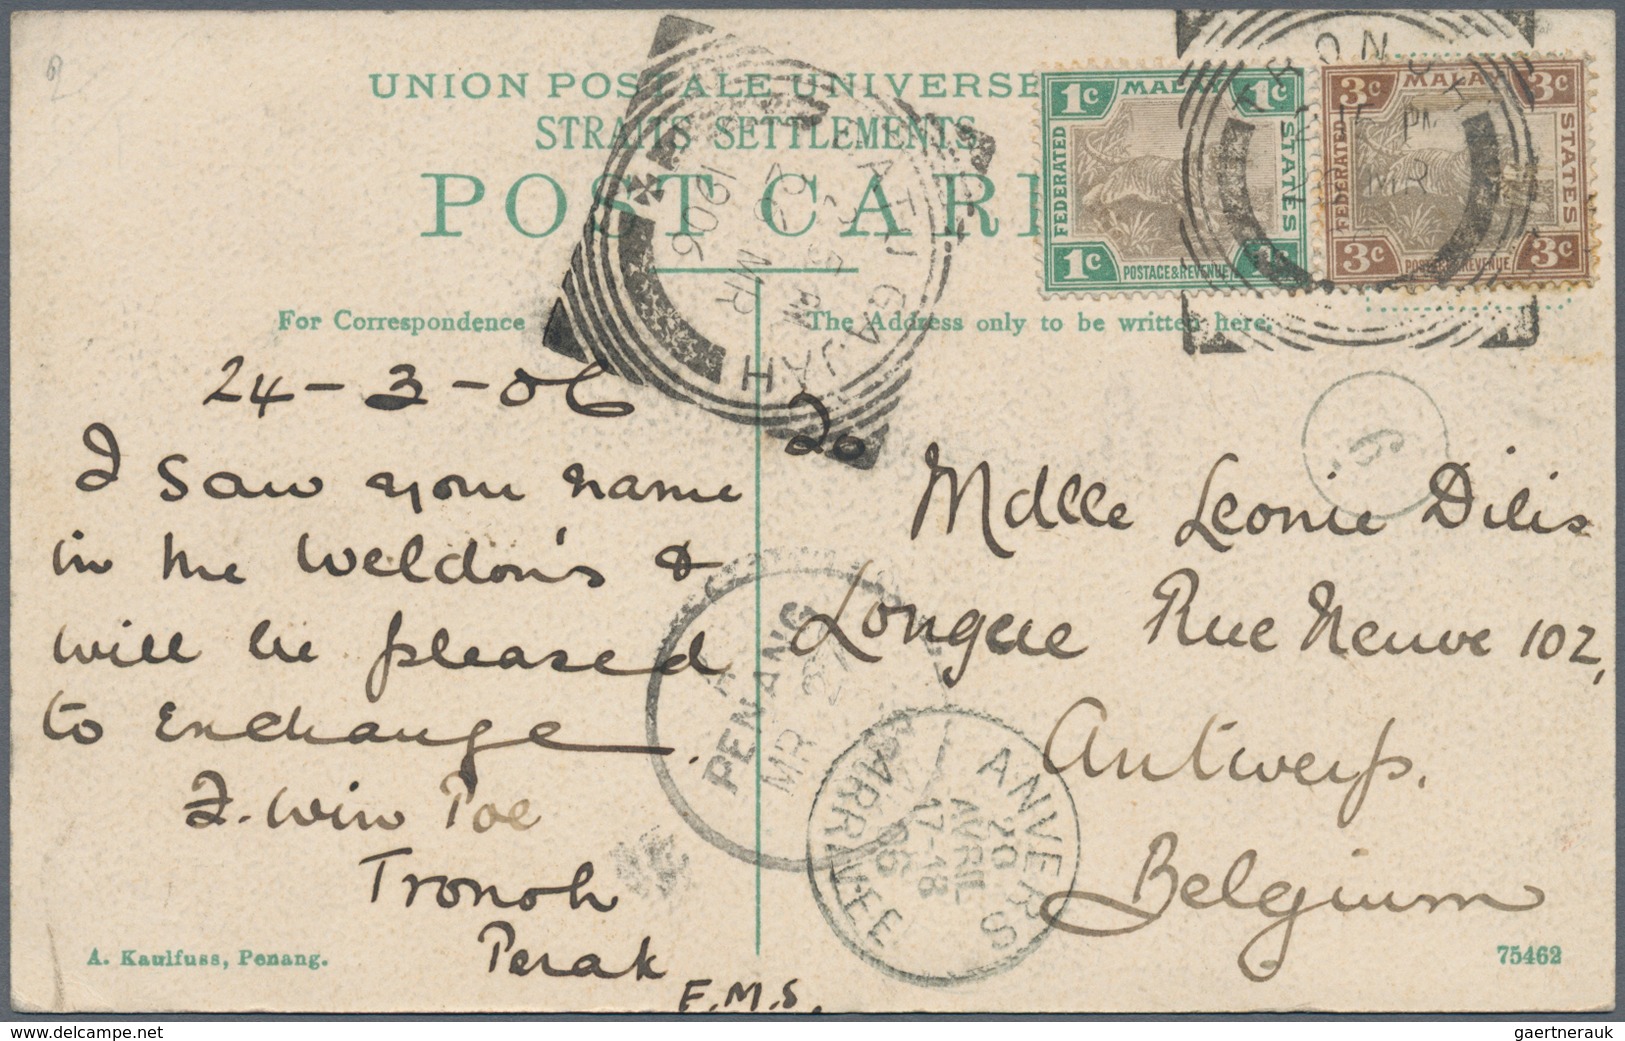 UNION POSTALE UNIVERSE
STRAITS SETTLEMENTS
POST CARD
1c MALAY 1c
FEDERATED STATES
1c POSTAGE & REVENUE 1c
3c MALAY 3c
FEDERATED STATES
3c POSTAGE & REVENUE 3c
TRONOH
PM
MR
BATU GAJAH
MR
1906
For Correspondence
The Address only to be written here.
24-3-06
I saw your name
in the Weldon's &
will be pleased
to Exchange.
Win Poe
Tronoh
Perak
F.M.S.
To
Mdlle Leonie Dilis
Longue Rue Neuve 102,
Antwerp.
Belgium
6
PENANG
MR 27
ANVERS
20
AVRIL
17-18
06
ARRIVEE
A. Kaulfuss, Penang.
75462
gaertnerauk
www.delcampe.net
gaertnerauk